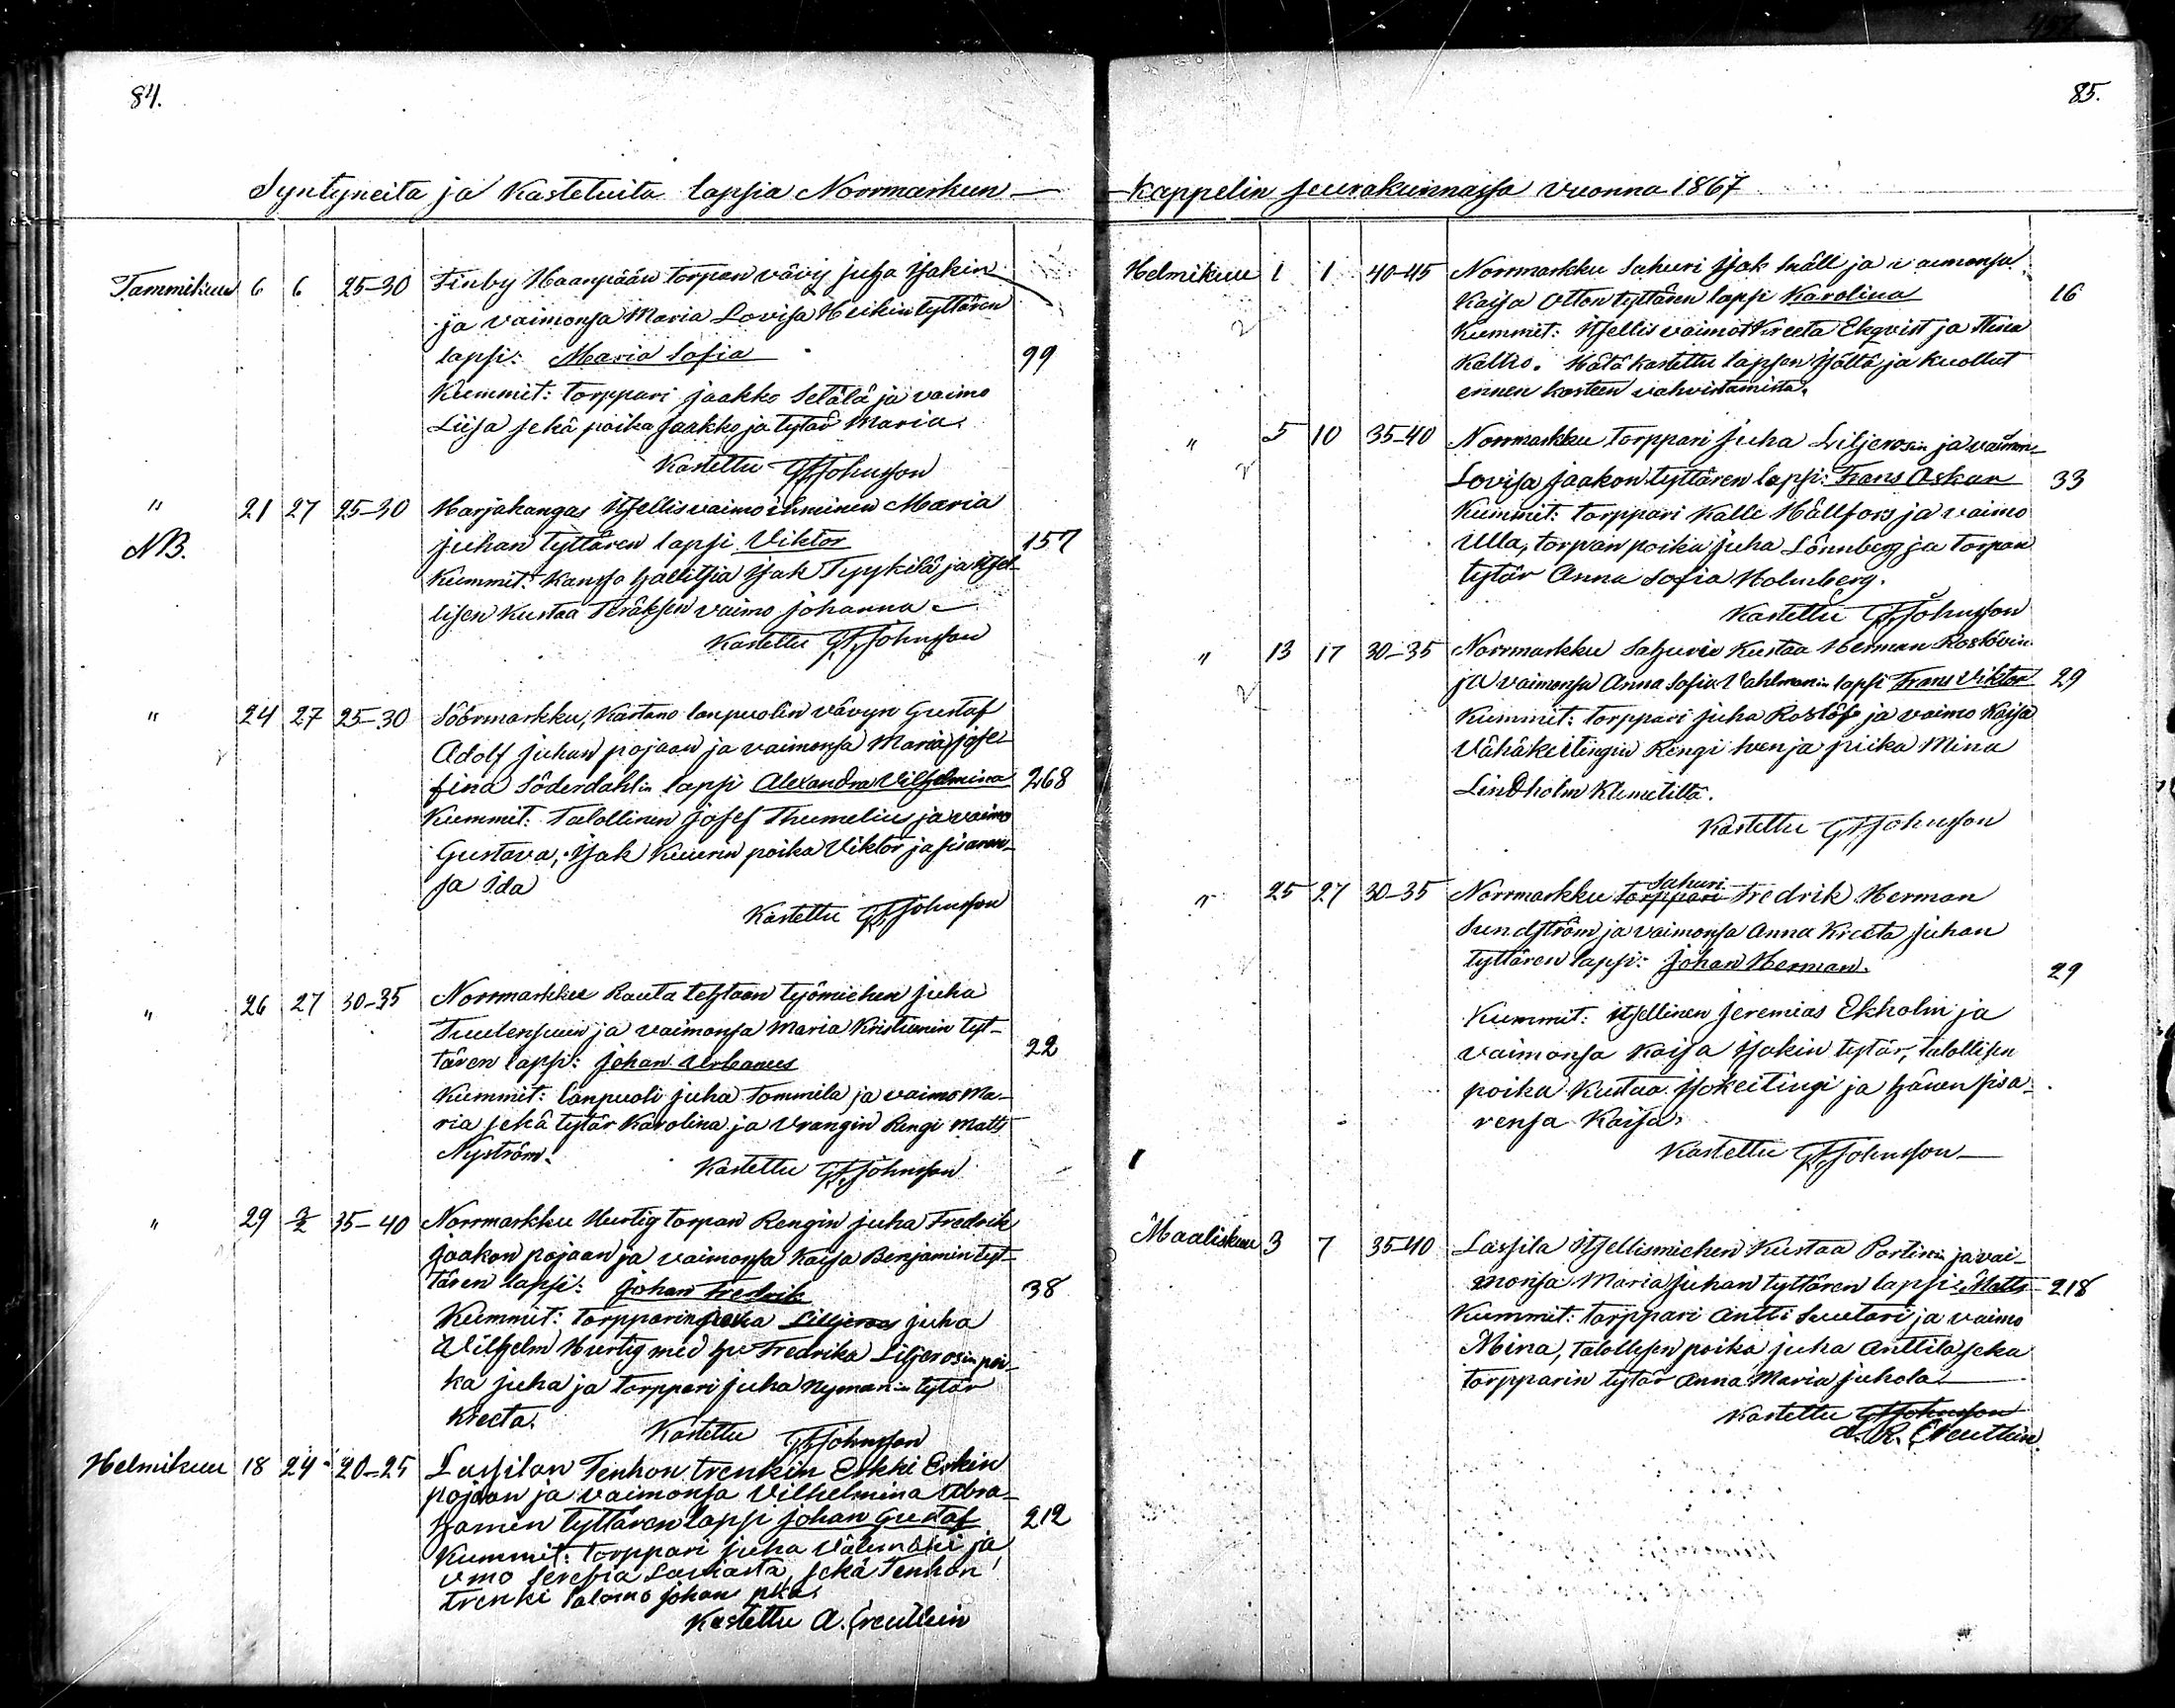 84.
Syntyneitä ja Kastetuita lapsia Norrmarkun—
Tammikuu 6 6 25–30 Finby Haanpään torpan vävy juha Isakin
ja vaimonsa Maria Lovisa Heikin tyttären
lapsi: Maria Sofia 99
Kummit: torppari jaakko Setälä ja vaimo
Liisa sekä poika jaakko ja tytär Maria.
Kastettu GFJohnsson
" 21 27 25–30 Harjakangas itsellis vaimo ihminen Maria
NB. juhan tyttären lapsi Viktor 157
Kummit: kansa hallitsia Isak Typpkilä ja itsel-
lisen Kustaa Teräksen vaimo johanna –
Kastettu GFJohnsson
" 24 27 25–30 Söörmarkku, Kastano lanpuolin vävyn Gustaf
Adolf juhan pojaan ja vaimonsa Maria jose-
fina Söderdahlin lapsi Alexandra Vilhelmina 268
Kummit: Talollinen josef Thumelius ja vaimo
Gustava, Isak Kuurin poika Viktor ja sisaren-
sa ida
Kastettu GFJohnsson
" 26 27 30–35 Norrmarkku Rauta tehtaan työmiehen juha
Tuulensuun ja vaimonsa Maria Kristianin tyt-
tären lapsi: johan Urbanus 22
Kummit: lanpuoli juha Tommila ja vaimo Ma-
ria sekä tytär Karolina ja Vrangin Rengi Matts
Nyström.
Kastettu GFJohnsson
" 29 3/2 35–40 Norrmarkku Hurtig torpan Rengin juha Fredrik
jaakon pojaan ja vaimonsa Kaisa Benjamin tyt-
tären lapsi: johan Fredrik 38
Kummit: torpparin poika Liljeros juha
Vilhelm Hurtig med hu Fredrika Liljerosin poi-
ka juha ja torppari juha Nymanin tytär
Kreeta.
Kastettu GFJohnsson
Helmikuu 18 24 20–25 Lassilan Tenhon trenkin Erkki Erkin
pojaan ja vaimonsa Vilhelmina Abra-
hamin tyttären lapsi johan Gustaf 212
Kummit: torppari juha Välimäki ja
vmo Serefia Laviasta, sekä Tenhon
trenki Salomo johan pka.
Kastettu A. Creutlein
85.
Kappelin seurakunnassa vuonna 1867
Helmikuu 1 1 40–45 Norrmarkku Sahuri Isak Snäll ja vaimonsa
Kaisa Otton tyttären lapsi Karolina 16
Kummit: itsellis vaimot Kreeta Ekqvist ja Stina
Kaltio. Hätä kastettu lapsen Isältä ja kuollut
ennen kasteen vahvistamista.
" 5 10 35–40 Norrmarkku torppari juha Liljerosin ja vaimon-
Lovisa jaakon tyttären lapsi: Frans Oskar 33
Kummit: torppari Kalle Hällfors ja vaimo
Ulla, torpan poika juha Lönnberg ja torpan
tytär Anna Sofia Holmberg.
Kastettu GFJohnsson
" 13 17 30–35 Norrmarkku Sahurin Kustaa Herman Roslövin
ja vaimonsa Anna Sofia Vahlmanin lapsi Frans Viktor 29
Kummit: torppari juha Roslöf ja vaimo Kaisa
Vähäkeitingin Rengi Sven ja piika Mina
Lindholm Klemetiltä.
Kastettu GFJohnsson
" 25 27 30–35 Norrmarkku torppari Sahuri Fredrik Herman
Sundström ja vaimonsa Anna Kreeta juhan
tyttären lapsi: johan Herman. 29
Kummit: itsellinen jeremias Ekholm ja
vaimonsa Kaisa Isakin tytär, talollisen
poika Kustaa Isokeitingi ja hänen sisa-
rensa Kaisa.
Kastettu GFJohnsson
Maaliskuu 3 7 35–40 Lassila itsellismiehen Kustaa Portinin ja vai-
monsa Maria juhan tyttären lapsi: Matts 218
Kummit: torppari Antti Suutari ja vaimo
Mina, talollisen poika juha Anttila seka
torpparin tytär Anna Maria juhola.
Kastettu GFJohnsson
A. R. Creutlein